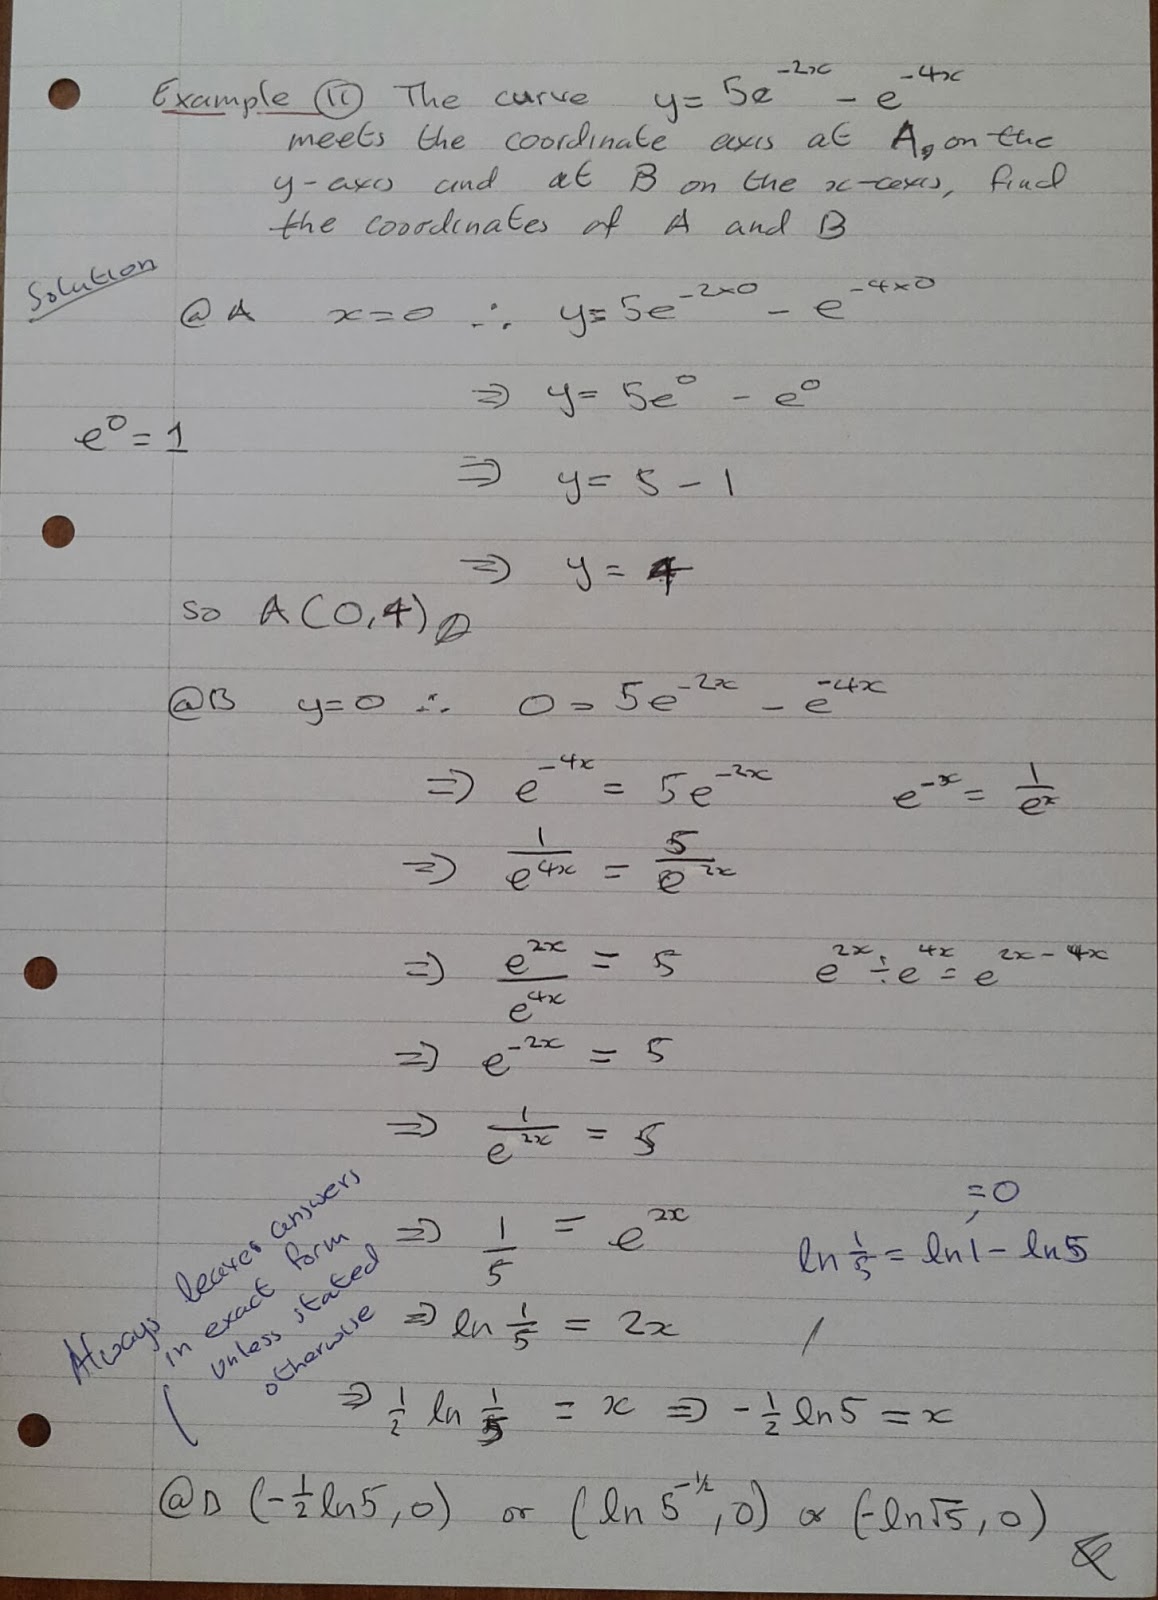 Example (11) The curve y = 5e^{-2x} - e^{-4x}
meets the coordinate axis at A, on the
y-axis and at B on the x-axis, find
the coordinates of A and B
Solution
@ A x=0 ∴ y= 5e^{-2×0} - e^{-4×0}
⇒ y= 5e^0 - e^0
e^0 = 1
⇒ y= 5 - 1
⇒ y = 4
so A(0,4)
@B y=0 ∴ 0 = 5e^{-2x} - e^{-4x}
⇒ e^{-4x} = 5e^{-2x} e^{-x} = 1/e^x
⇒ 1/e^{4x} = 5/e^{2x}
⇒ e^{2x}/e^{4x} = 5 e^{2x} ÷ e^{4x} = e^{2x-4x}
⇒ e^{-2x} = 5
⇒ 1/e^{2x} = 5
⇒ 1/5 = e^{2x}
=0
ln 1/5 = ln1 - ln5
⇒ ln 1/5 = 2x
Always leave answers
in exact form
unless stated
otherwise
⇒ 1/2 ln 1/5 = x ⇒ -1/2 ln5 = x
@B (-1/2 ln5, 0) or (ln 5^{-1/2}, 0) or (-ln√5, 0)